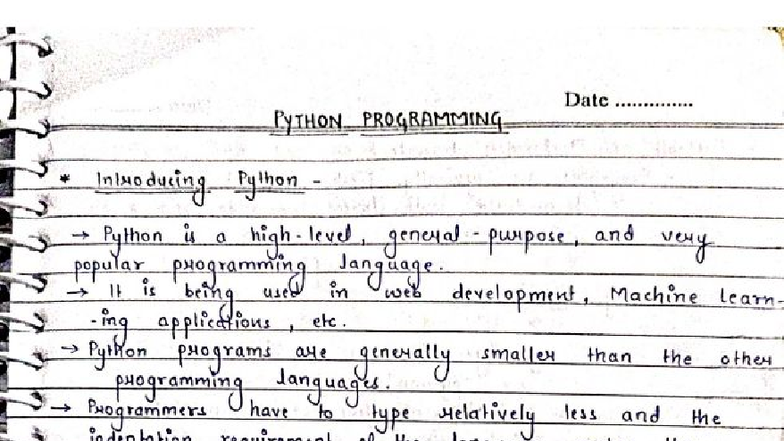 Date ..............
PYTHON PROGRAMMING
* Introducing Python -
→ Python is a high-level, general-purpose, and very
popular programming language.
→ It is being used in web development, Machine Learn-
-ing applications, etc.
→ Python programs are generally smaller than the other
programming languages.
→ Programmers have to type relatively less and the
indentation requirement of the